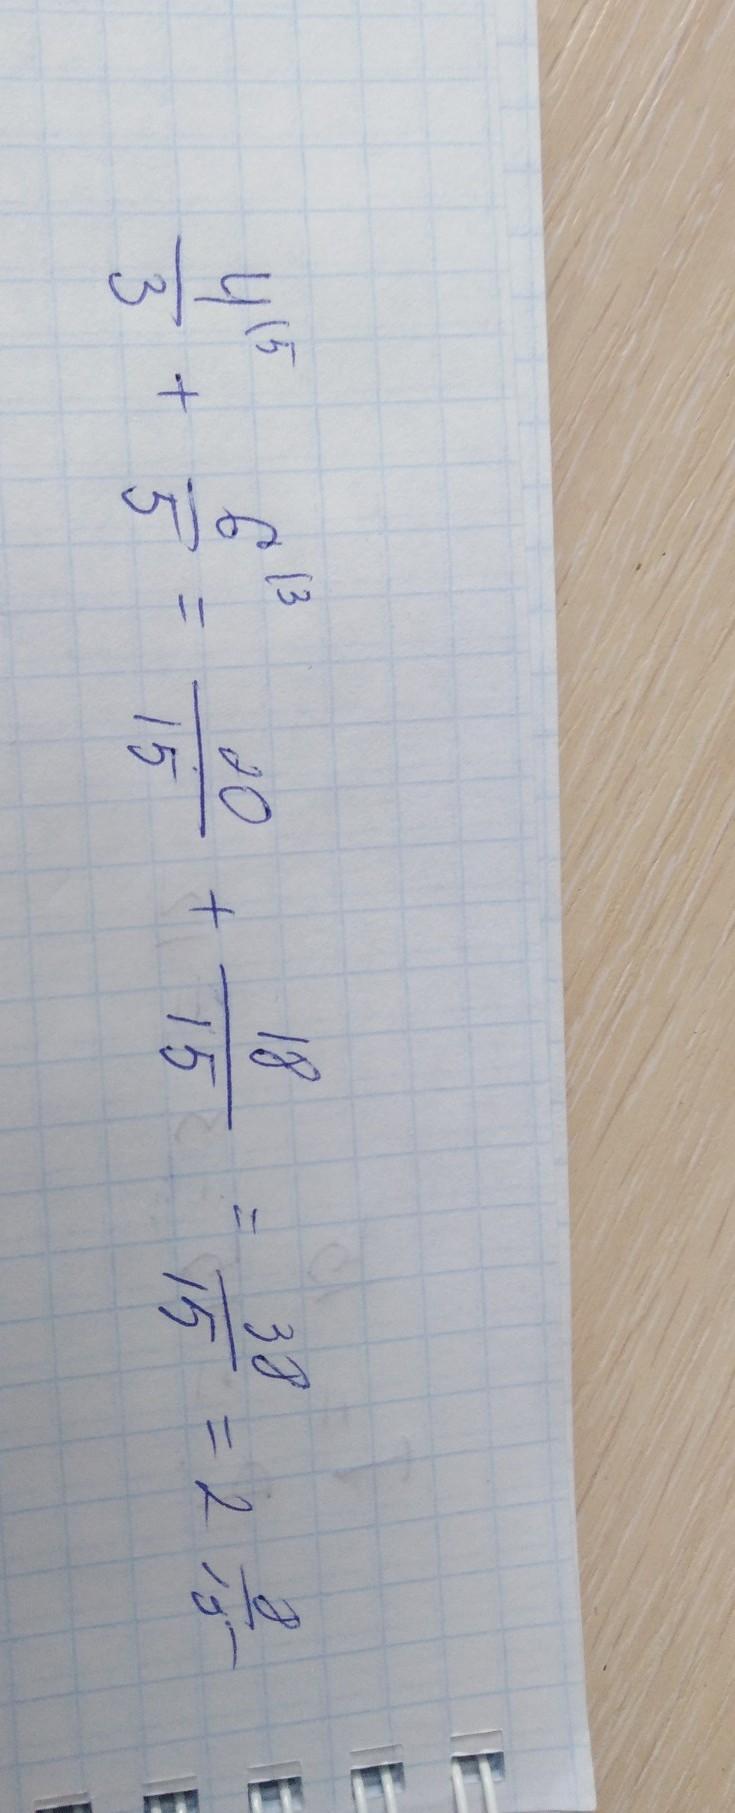 4⁽⁵/3 + 6⁽³/5 = 20/15 + 18/15 = 38/15 = 2 8/15